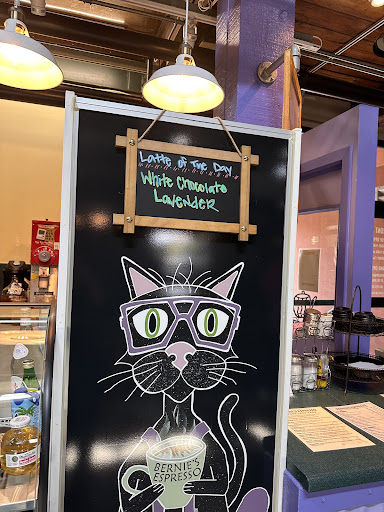 Latte of The Day
White Chocolate
Lavender
BERNIE'S
ESPRESSO